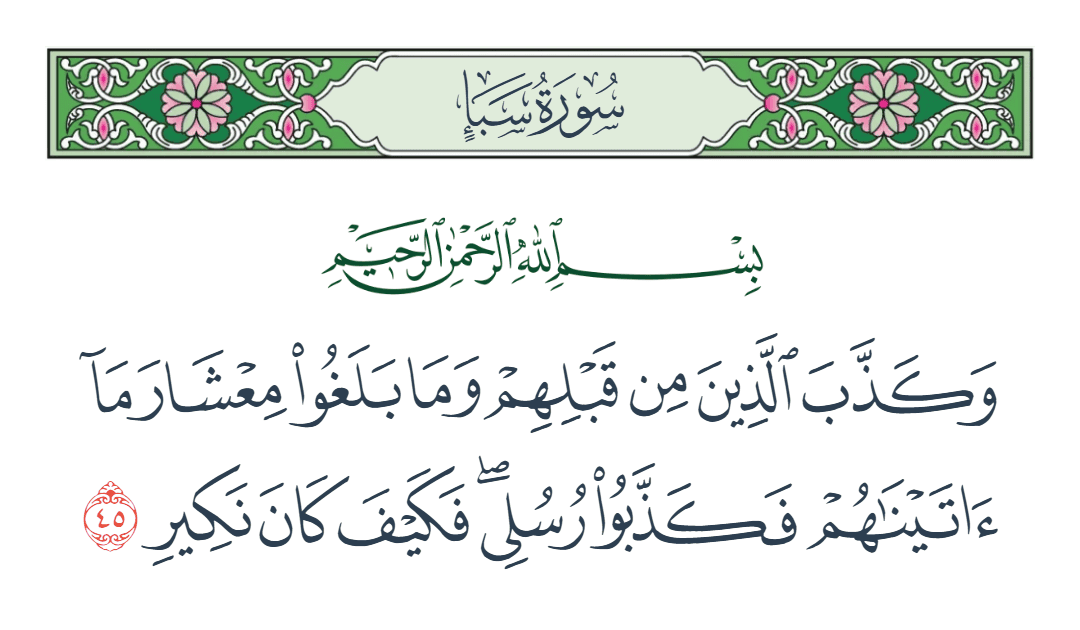 سُورَةُ سَبَإٍ
بِسْمِ ٱللَّهِ ٱلرَّحْمَٰنِ ٱلرَّحِيمِ
وَكَذَّبَ ٱلَّذِينَ مِن قَبْلِهِمْ وَمَا بَلَغُوا۟ مِعْشَارَ مَآ
ءَاتَيْنَٰهُمْ فَكَذَّبُوا۟ رُسُلِى ۖ فَكَيْفَ كَانَ نَكِيرِ ٤٥